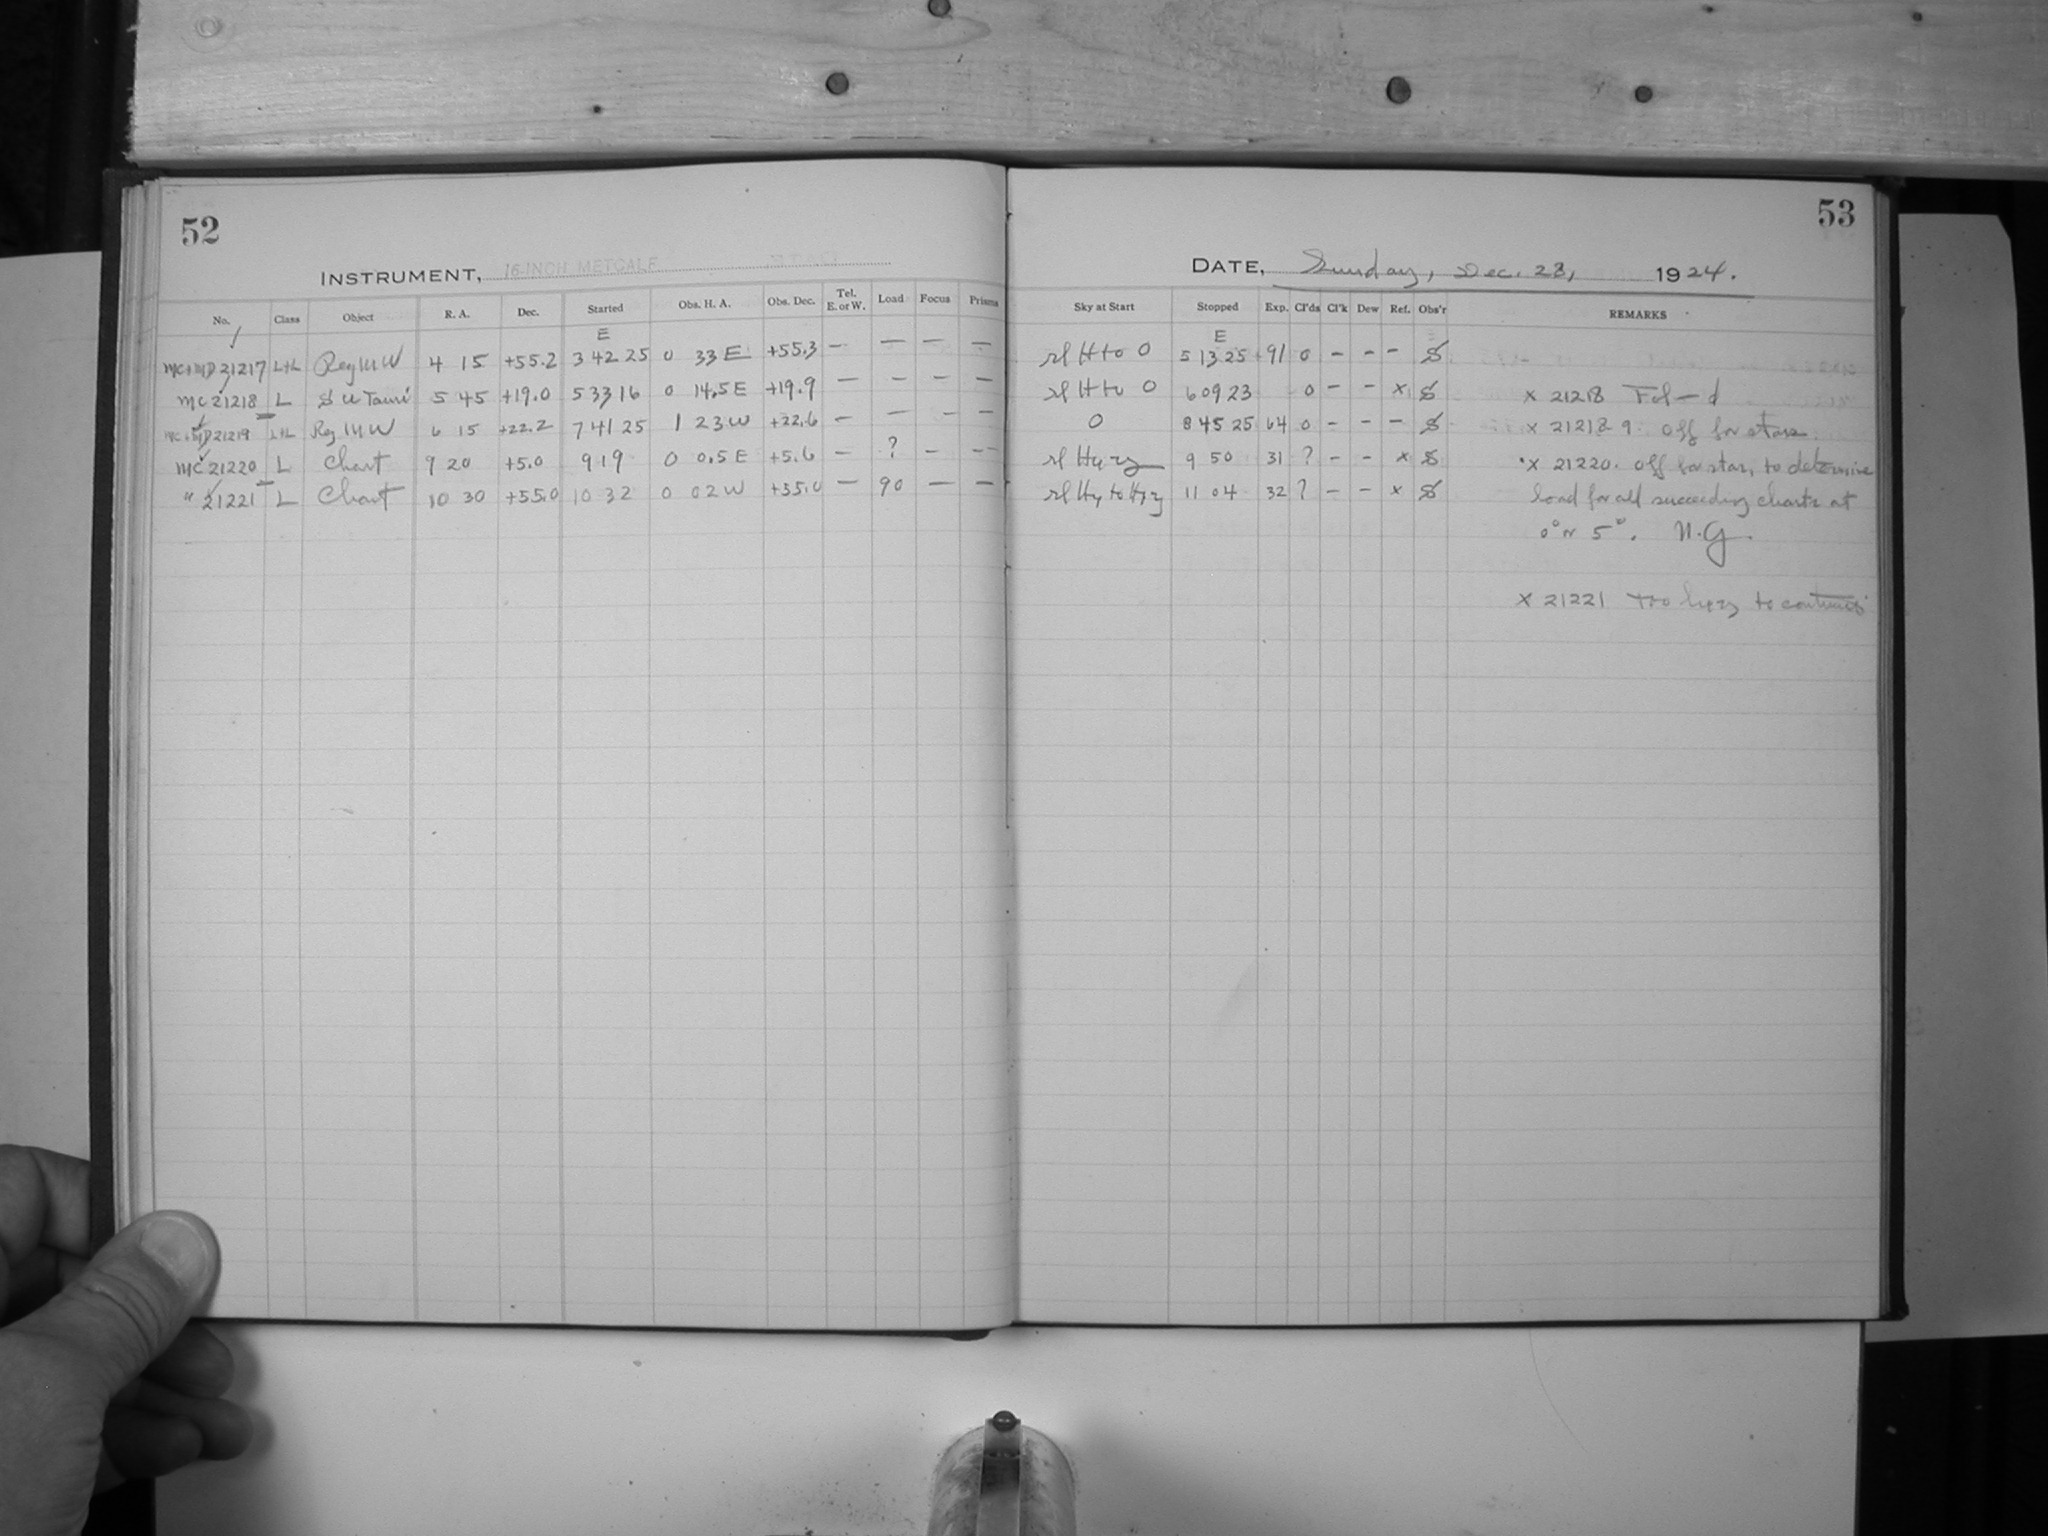 52
INSTRUMENT, 16-INCH METCALF
No. Class Object R. A. Dec. Started Obs. H. A. Obs. Dec. Tel. E. or W. Load Focus Prisms
E
MC+MD 21217 L+L Reg MW 4 15 +55.2 3 42 25 0 33 E +55.3 — — — —
MC 21218 L SU Tauri 5 45 +19.0 5 33 16 0 14.5 E +19.9 — — — —
MC+MD 21219 L+L Reg MW 6 15 +22.2 7 41 25 1 23 W +22.6 — — — —
MC 21220 L Chart 9 20 +5.0 9 19 0 0.5 E +5.6 — ? — —
" 21221 L Chart 10 30 +55.0 10 32 0 02 W +35.0 — 90 — —
53
DATE, Sunday, Dec. 28, 1924.
Sky at Start Stopped Exp. Cl'ds Cl'k Dew Ref. Obs'r REMARKS
E
sl H to 0 5 13 25 91 0 — — —
sl H to 0 6 09 23 0 — — x x 21218 Fcl — d
0 8 45 25 64 0 — — — x 21218 9. Off for stars.
sl Hyzy 9 50 31 ? — — x x 21220. Off for star, to determine
sl Hy to Hyzy 11 04 32 ? — — x load for all succeeding charts at
0° or 5°. N.G.
x 21221 Too hyzy to continue